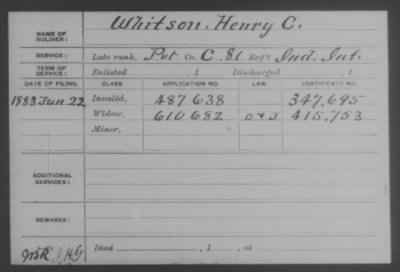 NAME OF SOLDIER: Whitson, Henry C.
SERVICE: Late rank, Pvt Co. C, 81 Reg't Ind. Inf.
TERM OF SERVICE: Enlisted , 1 Discharged , 1
DATE OF FILING. CLASS APPLICATION NO. LAW. CERTIFICATE NO.
1883 Jun 22 Invalid, 487 638 347,695
Widow, 610 682 415,753
Minor,
ADDITIONAL SERVICES:
REMARKS:
Died , 1 , at